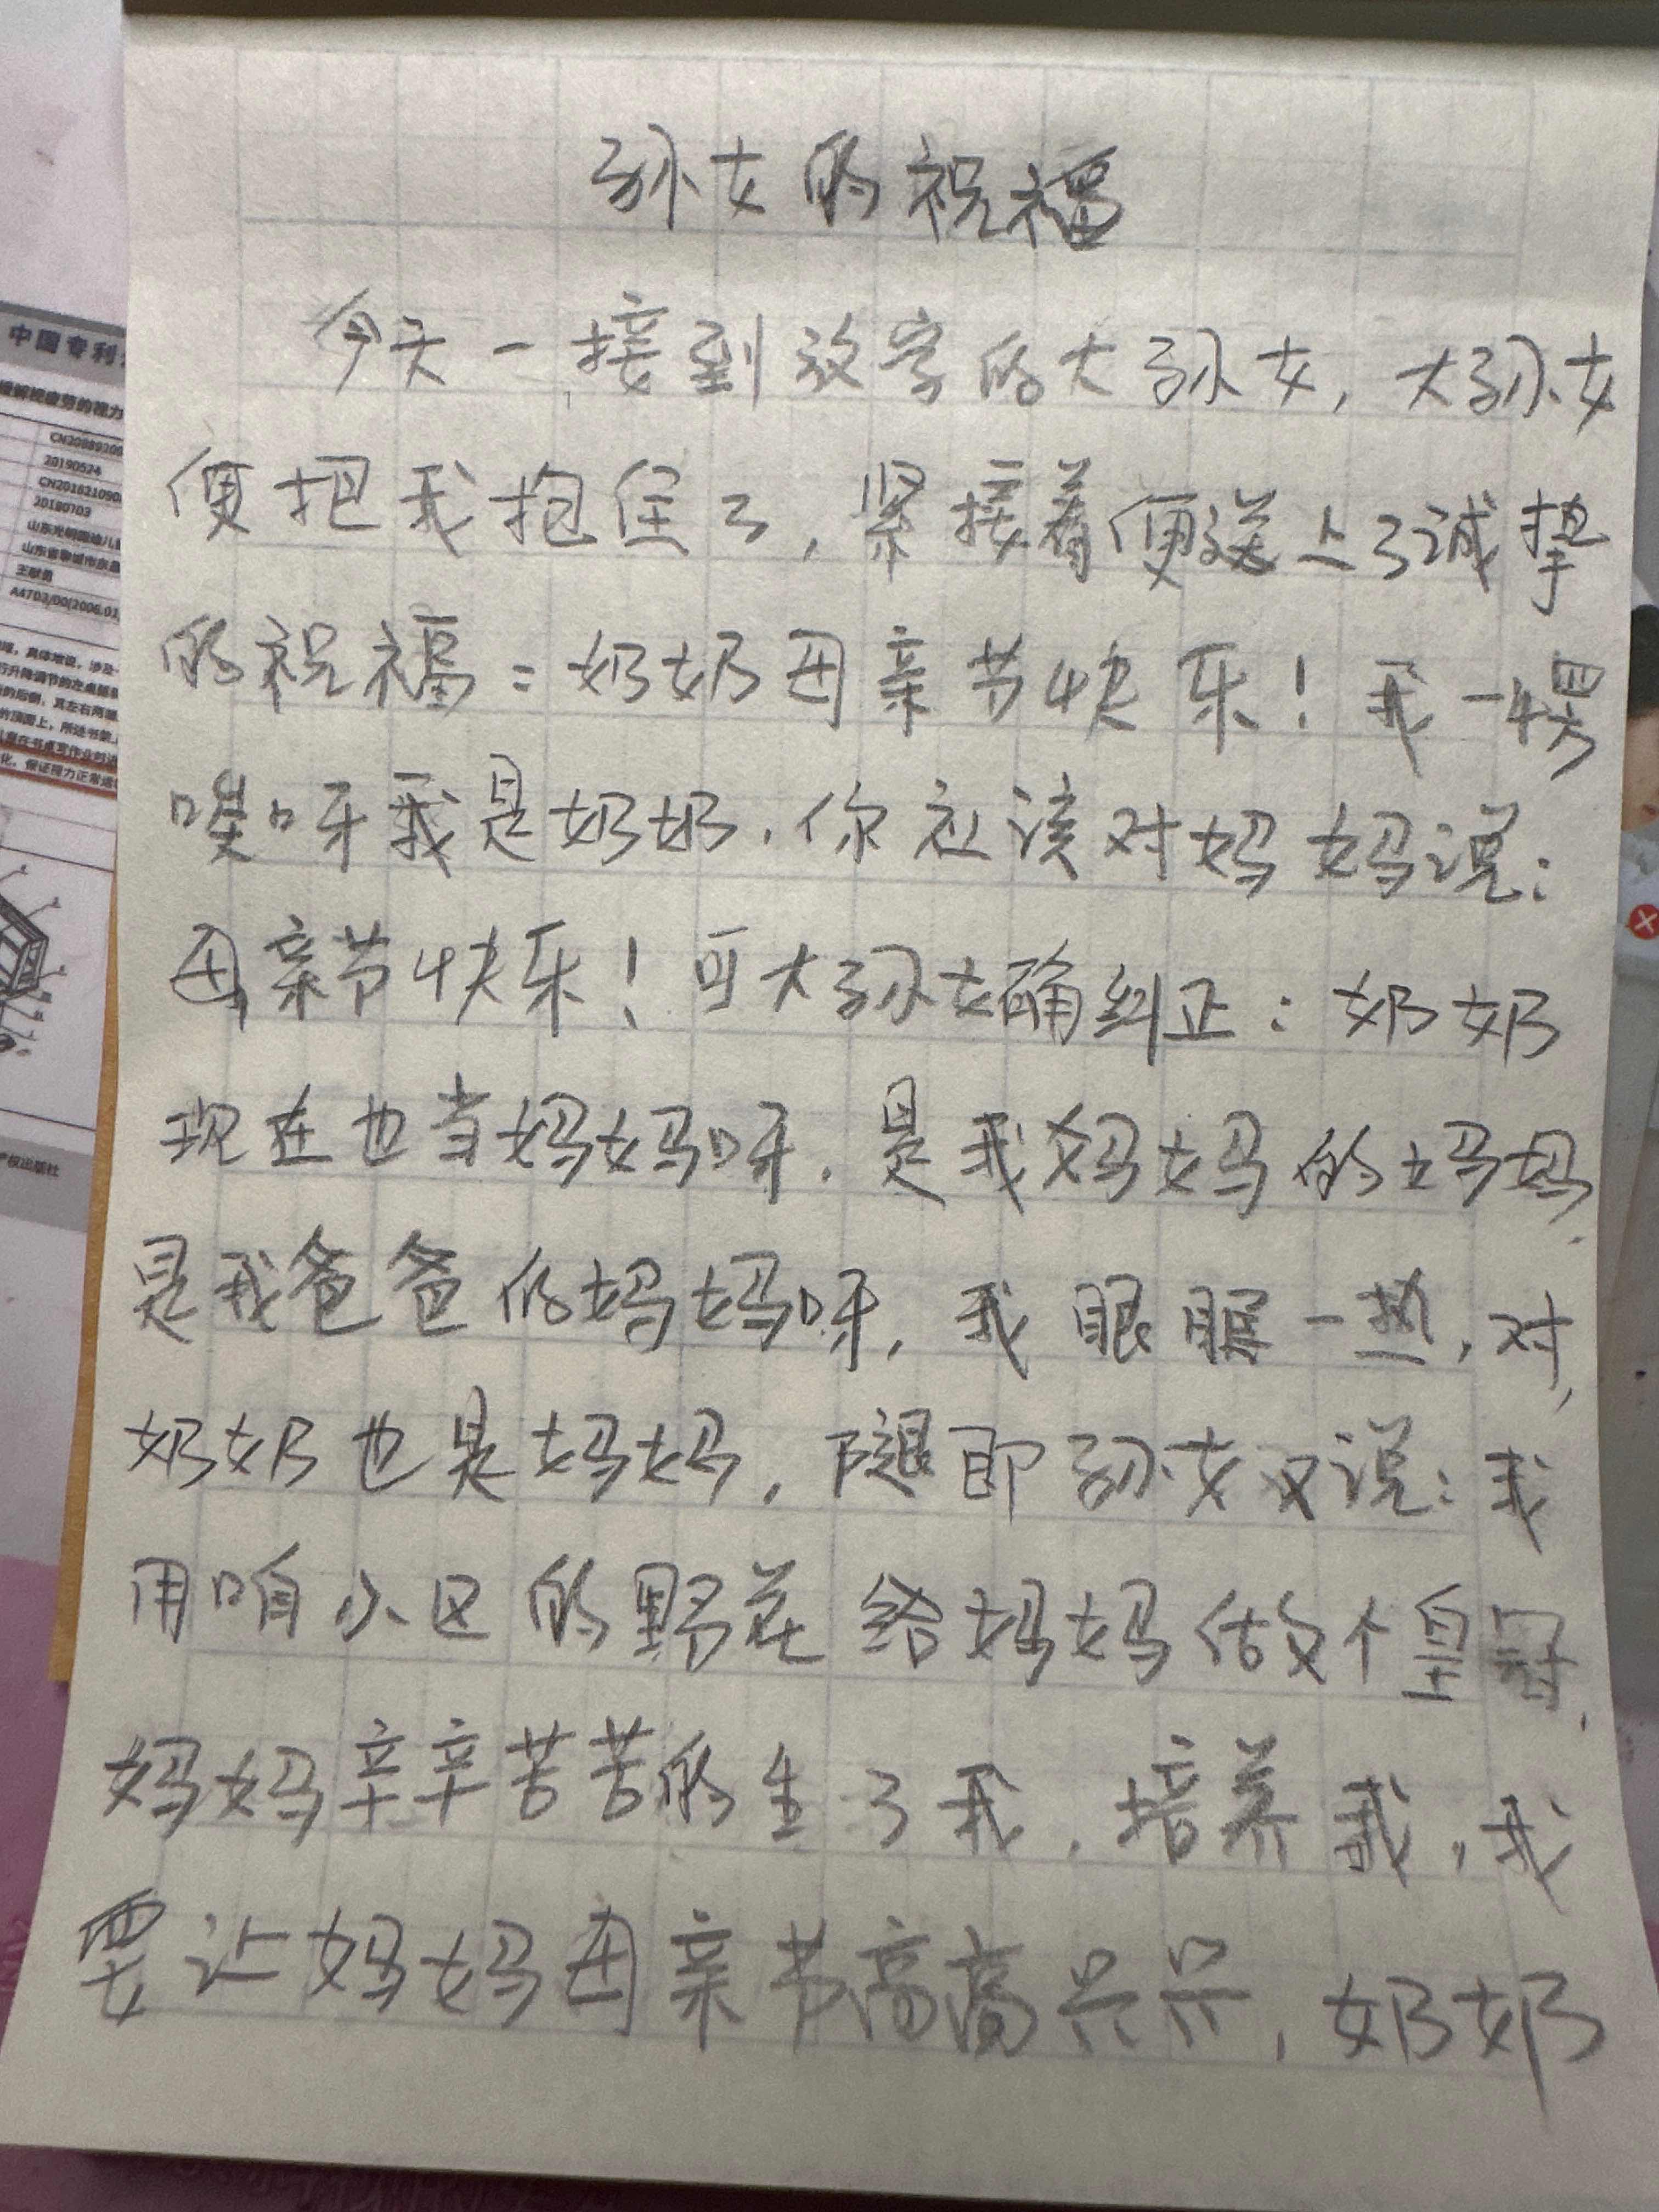 孙女的祝福
今天一接到放学的大孙女,大孙女
便把我抱住了,紧接着便送上了诚挚
的祝福:奶奶母亲节快乐!我一愣
嗳呀我是奶奶.你应该对妈妈说:
母亲节快乐!可大孙女确纠正:奶奶
现在也当妈妈呀.是我妈妈的妈妈,
是我爸爸的妈妈呀,我眼眶一热,对,
奶奶也是妈妈,随即孙女又说:我
用咱小区的野花给妈妈做个皇冠,
妈妈辛辛苦苦的生了我,培养我,我
要让妈妈母亲节高高兴兴,奶奶
中国专利
缓解视疲劳的视力
20190524
20180703
王献勇
A47D3/00(2006.01
产权出版社